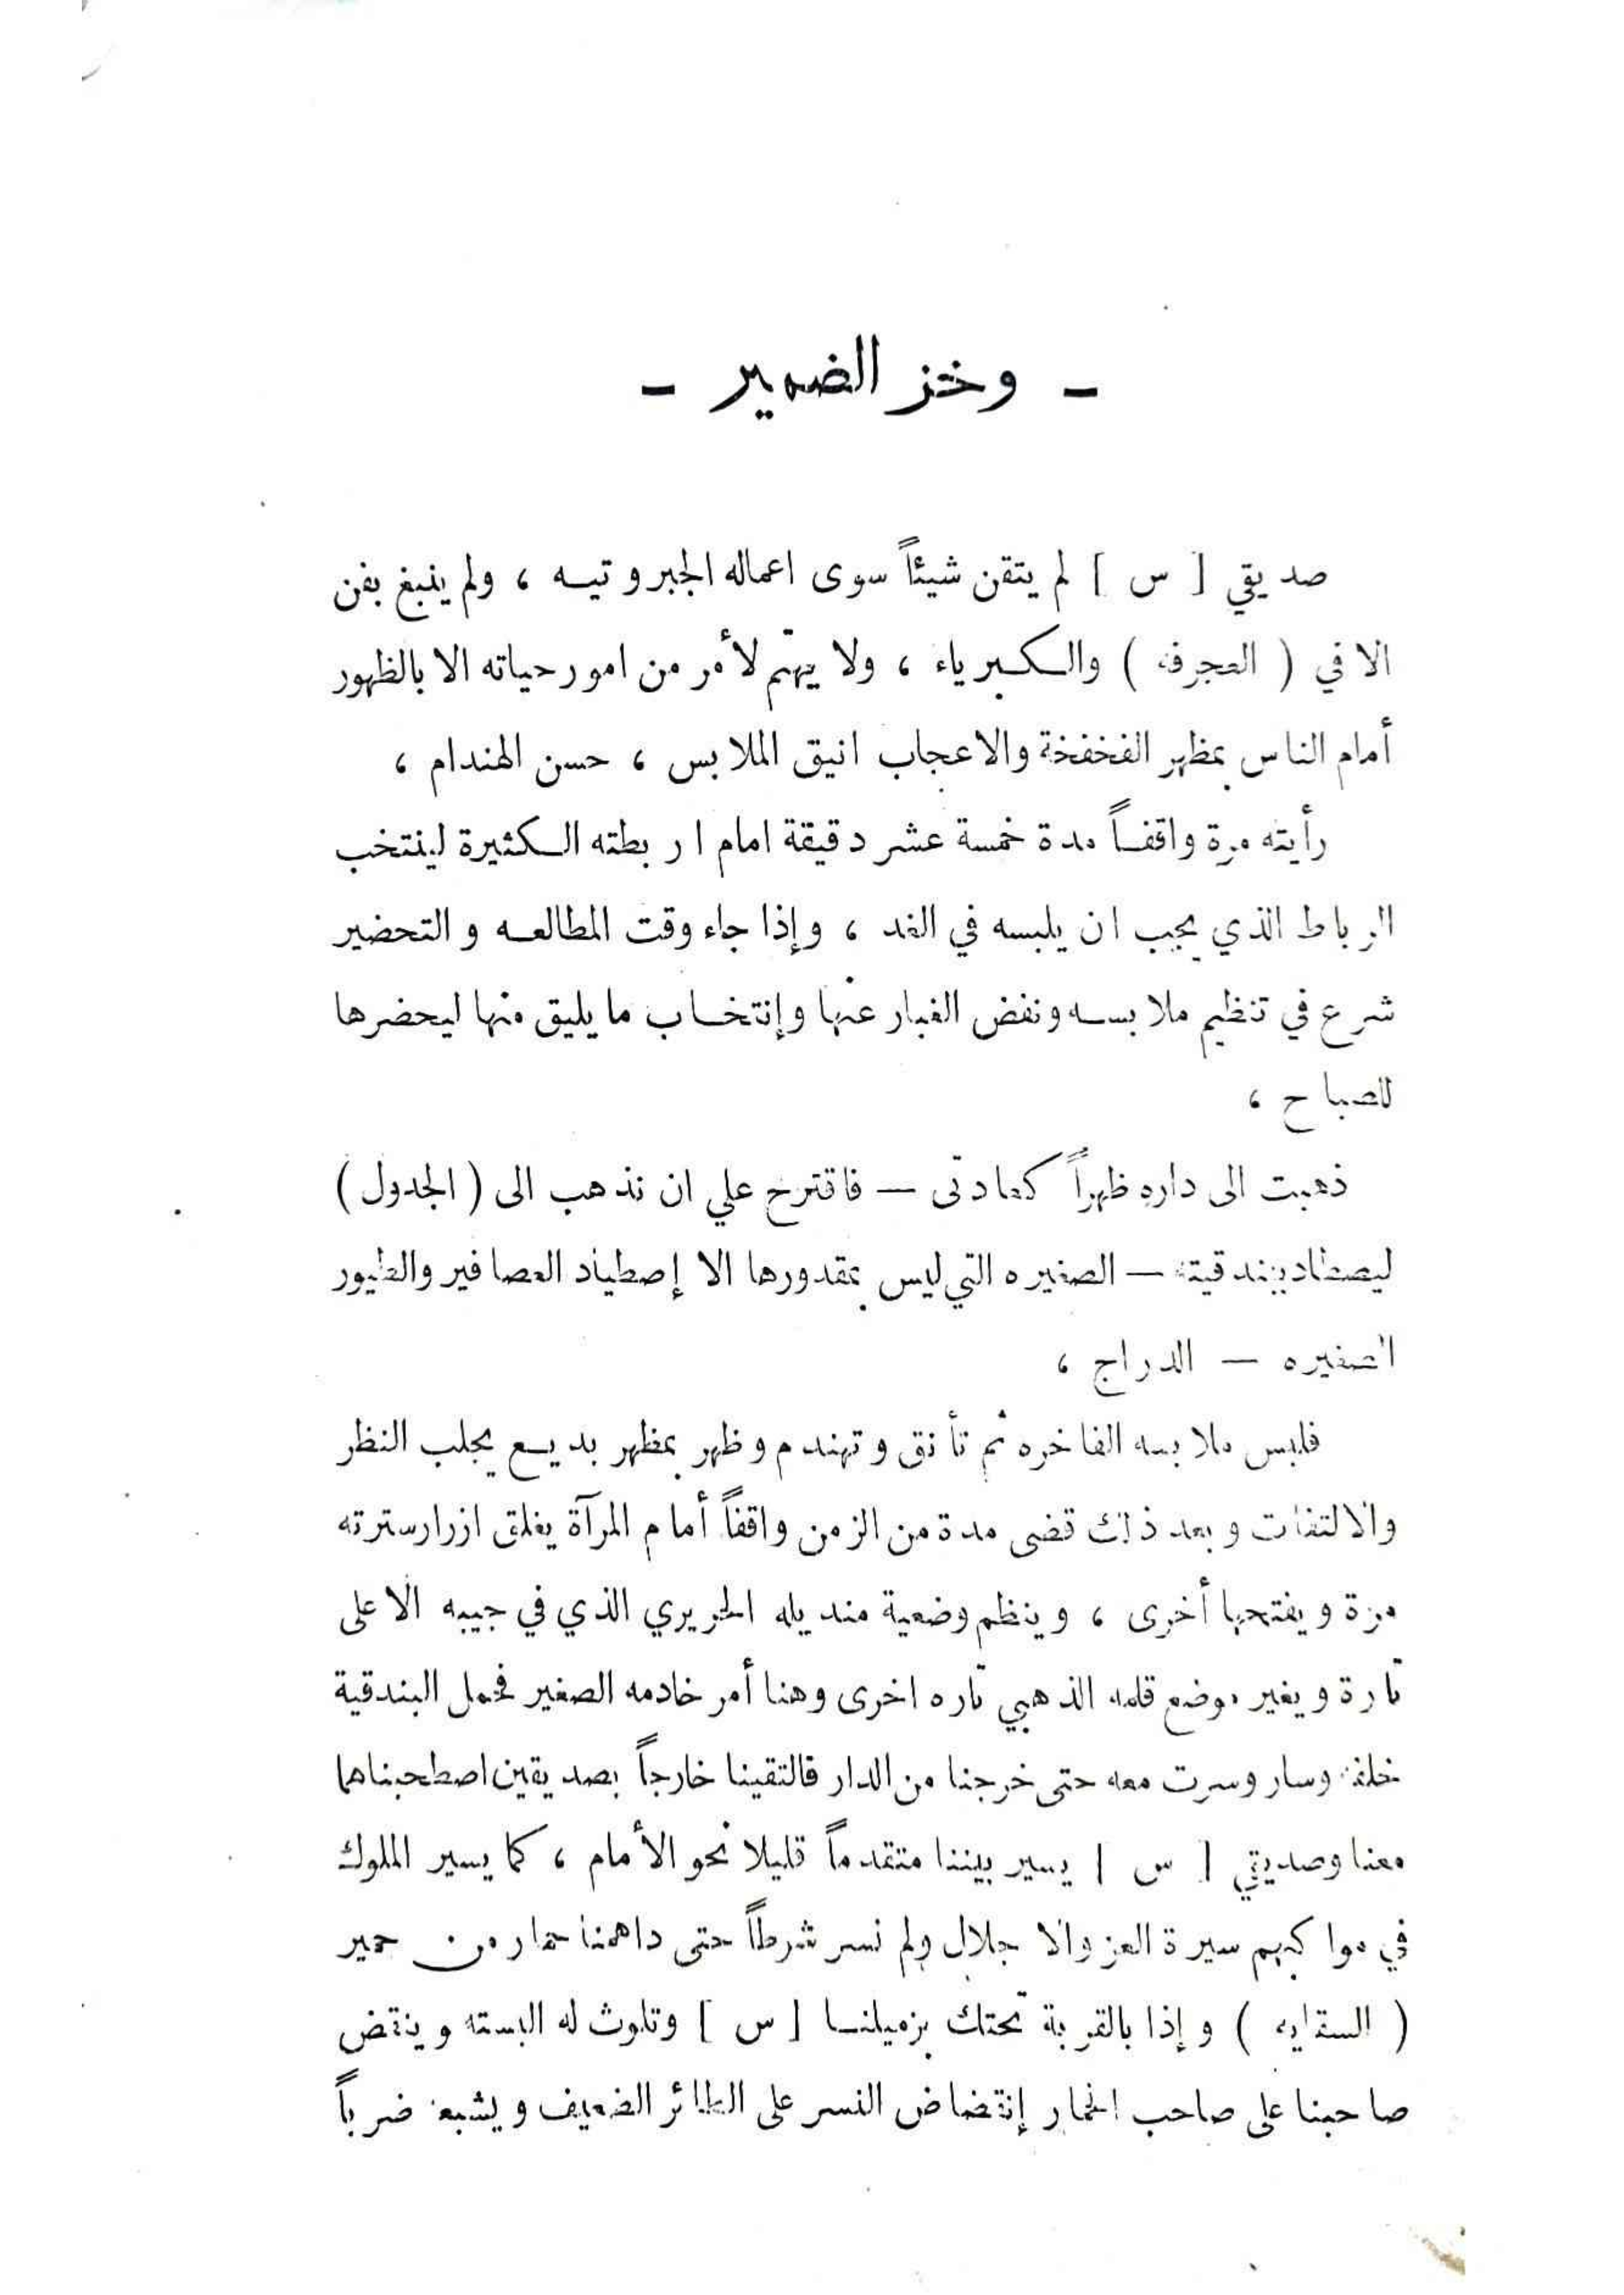 - وخز الضمير -
صديقي [ س ] لم يتقن شيئاً سوى اعماله الجبروتيه ، ولم ينبغ بفن
الا في ( العجرفه ) والكبرياء ، ولا يهتم لأمر من امور حياته الا بالظهور
أمام الناس بمظهر الفخفخة والاعجاب انيق الملابس ، حسن الهندام ،
رأيته مرة واقفاً مدة خمسة عشر دقيقة امام اربطته الكثيرة لينتخب
الرباط الذي يجب ان يلبسه في الغد ، وإذا جاء وقت المطالعه والتحضير
شرع في تنظيم ملابسه ونفض الغبار عنها وإنتخاب ما يليق منها ليحضرها
للصباح ،
ذهبت الى داره ظهراً كعادتى — فاقترح علي ان نذهب الى ( الجدول )
ليصطاد ببندقيته — الصغيره التي ليس بمقدورها الا إصطياد العصافير والطيور
الصغيره — الدراج ،
فلبس ملابسه الفاخره ثم تأنق وتهندم وظهر بمظهر بديع يجلب النظر
والالتفات وبعد ذلك قضى مدة من الزمن واقفاً أمام المرآة يغلق ازرار سترته
مرة ويفتحها أخرى ، وينظم وضعية منديله الحريري الذي في جيبه الاعلى
تارة ويغير موضع قلمه الذهبي تاره اخرى وهنا أمر خادمه الصغير فحمل البندقية
خلفه وسار وسرت معه حتى خرجنا من الدار فالتقينا خارجاً بصديقين اصطحبناهما
معنا وصديقي [ س ] يسير بيننا متقدماً قليلا نحو الأمام ، كما يسير الملوك
في مواكبهم سيرة العز والاجلال ولم نسر شرطاً حتى داهمنا حمار من حمير
( السقايه ) وإذا بالقربة تحتك بزميلنا [ س ] وتلوث له البسته وينقض
صاحبنا على صاحب الحمار إنقضاض النسر على الطائر الضعيف ويشبعه ضرباً